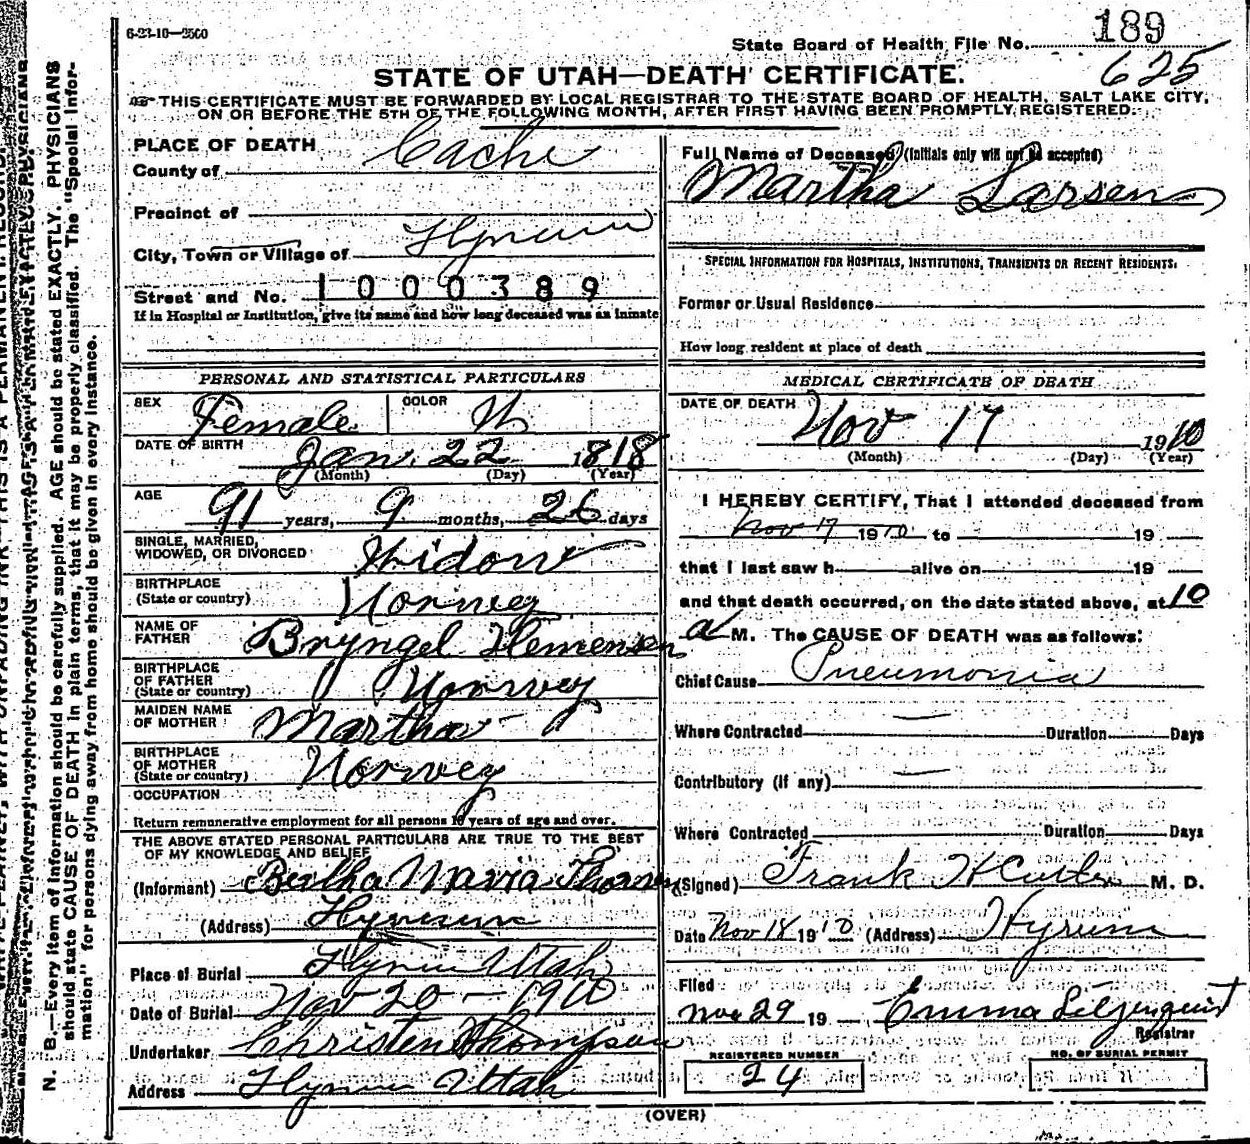 6-23-10—2500
189
State Board of Health File No.
625
STATE OF UTAH—DEATH CERTIFICATE.
THIS CERTIFICATE MUST BE FORWARDED BY LOCAL REGISTRAR TO THE STATE BOARD OF HEALTH, SALT LAKE CITY,
ON OR BEFORE THE 5TH OF THE FOLLOWING MONTH, AFTER FIRST HAVING BEEN PROMPTLY REGISTERED.
PLACE OF DEATH
County of Cache
Precinct of
City, Town or Village of Hyrum
Street and No. 1000389
If in Hospital or Institution, give its name and how long deceased was an inmate
PERSONAL AND STATISTICAL PARTICULARS
SEX Female COLOR W
DATE OF BIRTH Jan. 22 1818
(Month) (Day) (Year)
AGE
91 years, 9 months, 26 days
SINGLE, MARRIED,
WIDOWED, OR DIVORCED Widow
BIRTHPLACE
(State or country) Norwey
NAME OF
FATHER Bryngel Hemensen
BIRTHPLACE
OF FATHER
(State or country) Norwey
MAIDEN NAME
OF MOTHER Martha -
BIRTHPLACE
OF MOTHER
(State or country) Norwey
OCCUPATION
Return remunerative employment for all persons 10 years of age and over.
THE ABOVE STATED PERSONAL PARTICULARS ARE TRUE TO THE BEST
OF MY KNOWLEDGE AND BELIEF
(Informant) Bertha Maria
(Address) Hyrum
Place of Burial Hyrum Utah
Date of Burial Nov 20 - 1910
Undertaker Christen Thompson
Address Hyrum Utah
Full Name of Deceased (Initials only will not be accepted)
Martha Larsen
SPECIAL INFORMATION FOR HOSPITALS, INSTITUTIONS, TRANSIENTS OR RECENT RESIDENTS.
Former or Usual Residence
How long resident at place of death
MEDICAL CERTIFICATE OF DEATH
DATE OF DEATH Nov 17 1910
(Month) (Day) (Year)
I HEREBY CERTIFY, That I attended deceased from
Nov 17 1910 to 19
that I last saw h alive on 19
and that death occurred, on the date stated above, at 10
a M. The CAUSE OF DEATH was as follows:
Chief Cause Pneumonia
Where Contracted — Duration Days
Contributory (if any) —
Where Contracted Duration Days
(Signed) Frank H M. D.
Date Nov 18 1910 (Address) Hyrum
Filed
Nov 29 19 — Emma Liljenquist
Registrar
REGISTERED NUMBER
24
NO. OF BURIAL PERMIT
(OVER)
N. B.—Every item of information should be carefully supplied. AGE should be stated EXACTLY. PHYSICIANS
should state CAUSE OF DEATH in plain terms, that it may be properly classified. The "Special Infor-
mation" for persons dying away from home should be given in every instance.